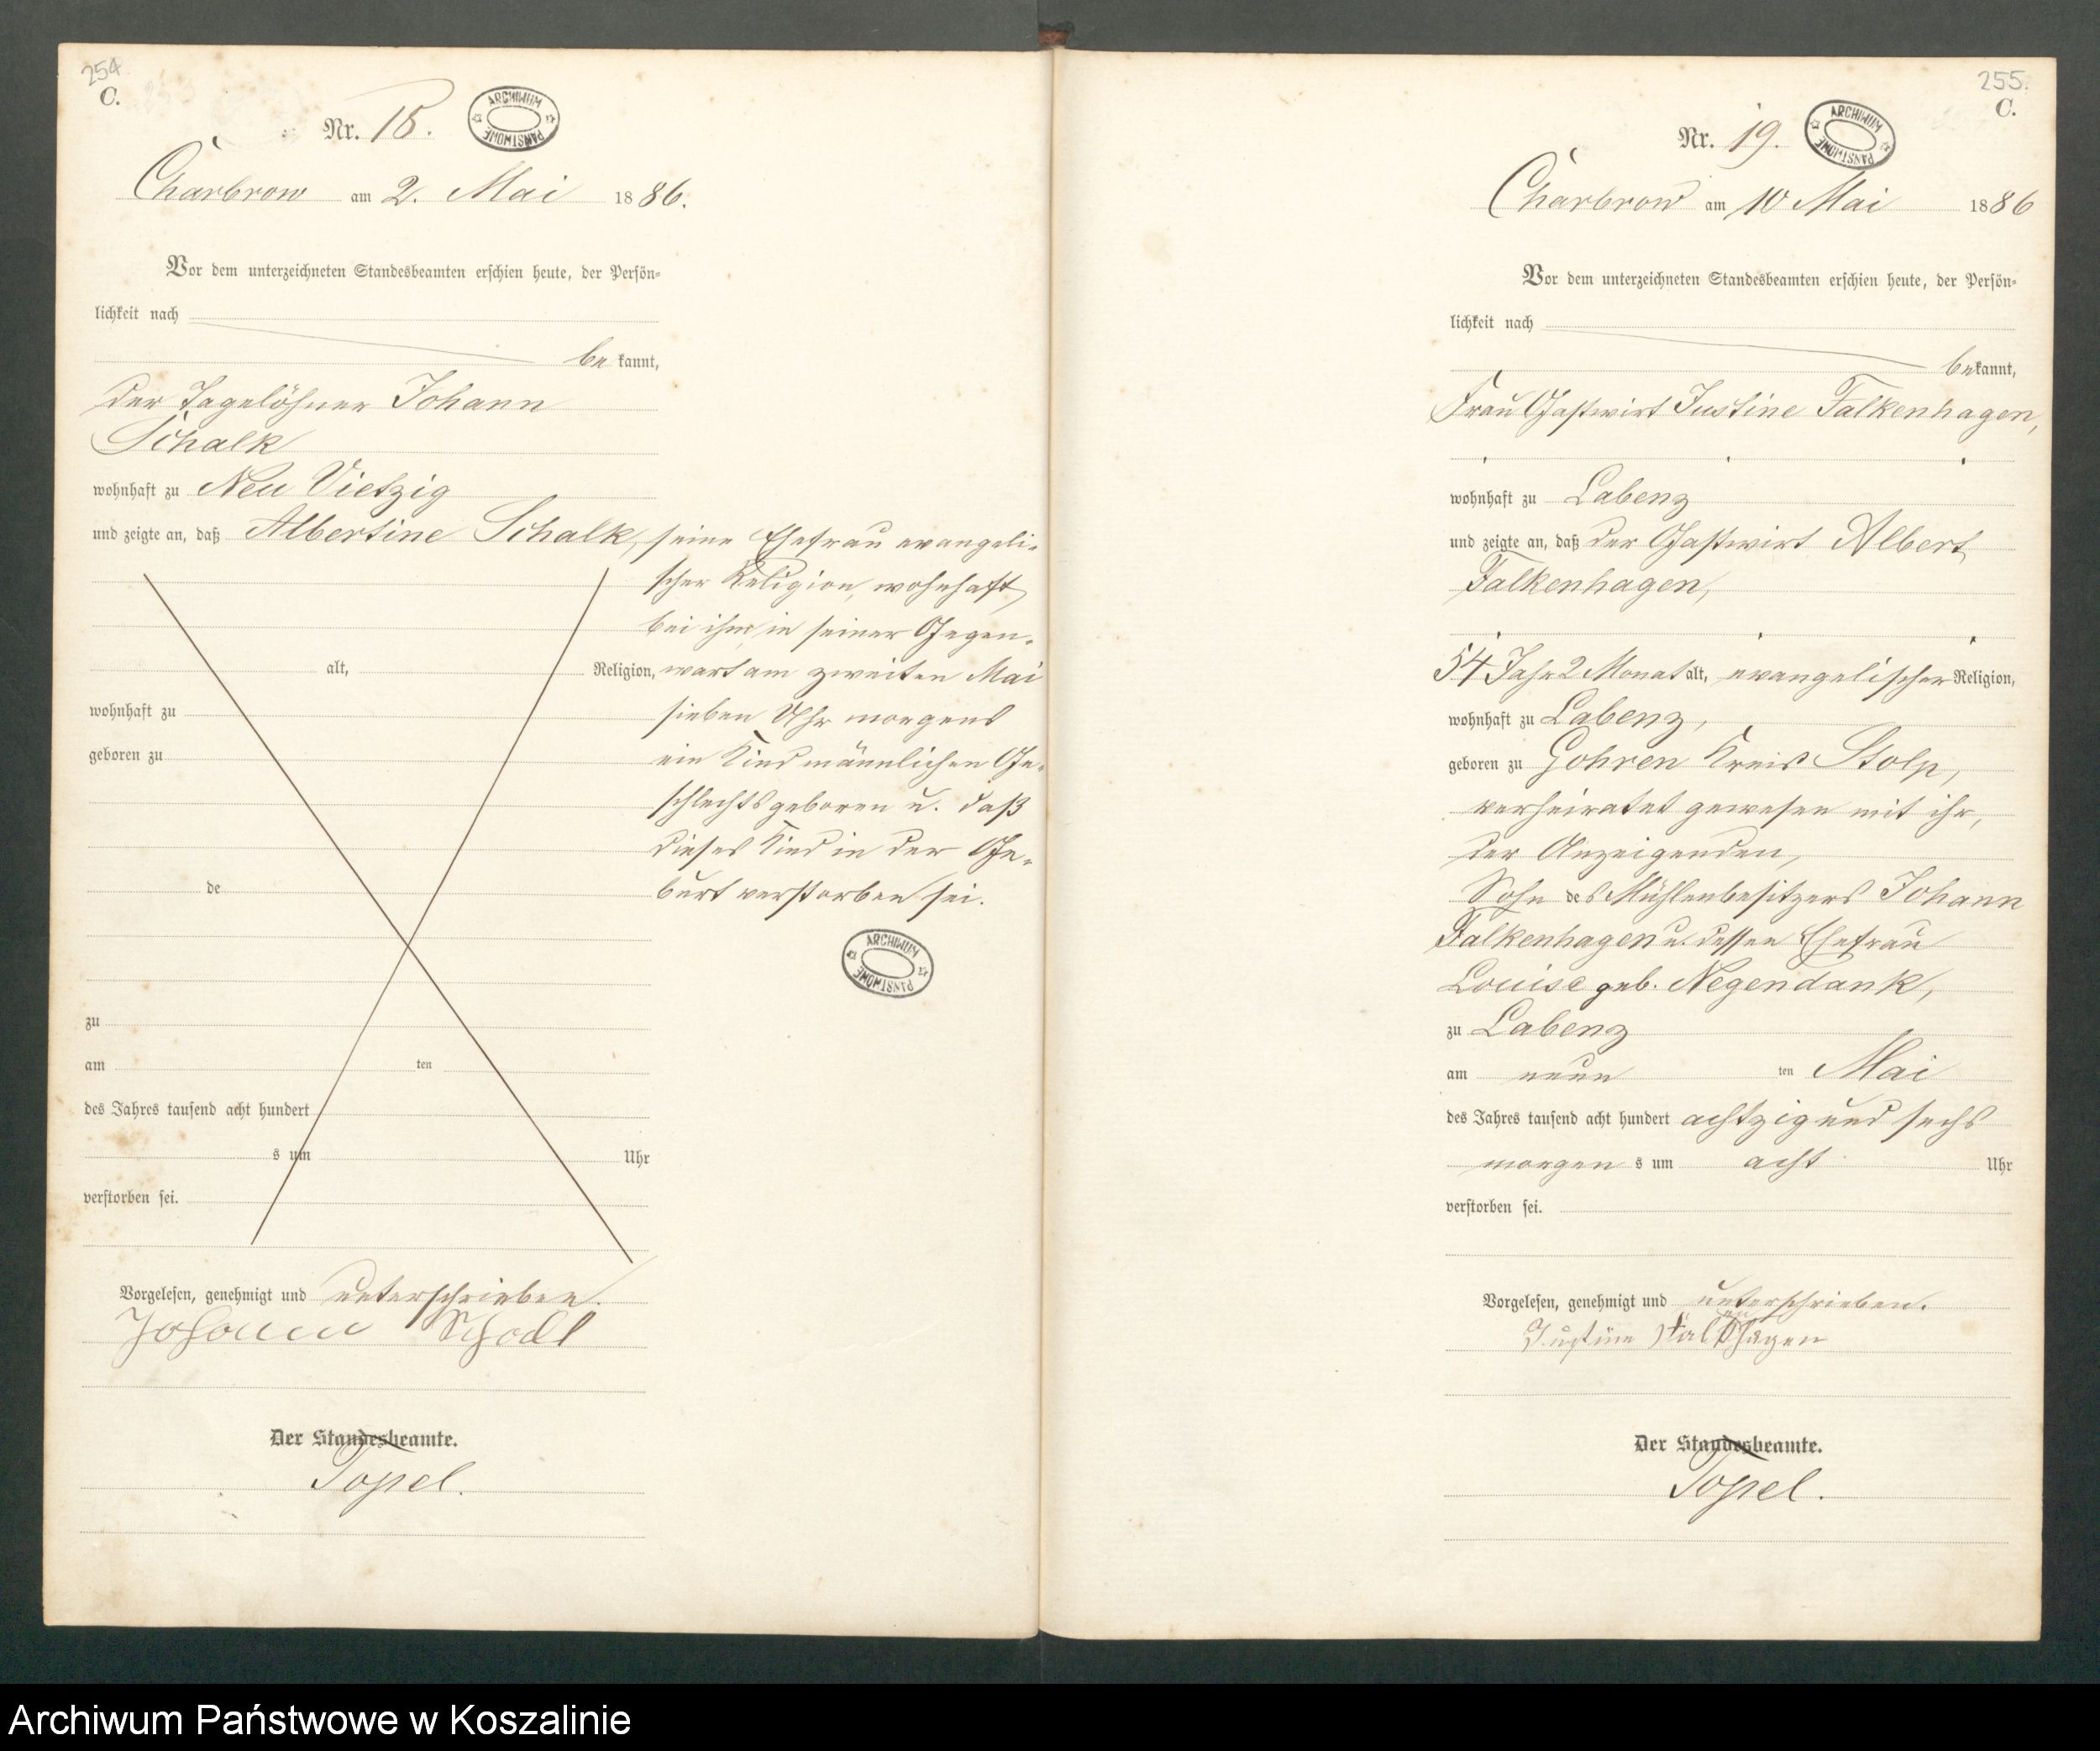 254
C.
Nr. 18.
ARCHIWUM PAŃSTWOWE
Charbrow am 2. Mai 1886.
Vor dem unterzeichneten Standesbeamten erschien heute, der Persön-
lichkeit nach
bekannt,
der Tagelöhner Johann
Schalk
wohnhaft zu Neu Vietzig
und zeigte an, daß Albertine Schalk, seine Ehefrau evangeli-
scher Religion, wohnhaft
bei ihm, in seiner Gegen-
alt, Religion, wart am zweiten Mai
wohnhaft zu sieben Uhr morgens
geboren zu ein Kind männlichen Ge-
schlechts geboren u. daß
dieses Kind in der Ge-
de burt verstorben sei.
ARCHIWUM PAŃSTWOWE
zu
am ten
des Jahres tausend acht hundert
s um Uhr
verstorben sei.
Vorgelesen, genehmigt und unterschrieben.
Johann Schalk
Der Standesbeamte.
Topel.
255.
C.
Nr. 19.
ARCHIWUM PAŃSTWOWE
Charbrow am 10 Mai 1886
Vor dem unterzeichneten Standesbeamten erschien heute, der Persön-
lichkeit nach
bekannt,
Frau Gastwirt Justine Falkenhagen,
wohnhaft zu Labenz
und zeigte an, daß der Gastwirt Albert
Falkenhagen,
54 Jahr 2 Monat alt, evangelischer Religion,
wohnhaft zu Labenz,
geboren zu Gohren Kreis Stolp,
verheiratet gewesen mit ihr,
der Anzeigenden,
Sohn des Mühlenbesitzers Johann
Falkenhagen u. dessen Ehefrau
Louise geb. Negendank,
zu Labenz
am neun ten Mai
des Jahres tausend acht hundert achtzig und sechs
morgen s um acht Uhr
verstorben sei.
Vorgelesen, genehmigt und unterschrieben.
Justine Falkenhagen
Der Standesbeamte.
Topel.
Archiwum Państwowe w Koszalinie